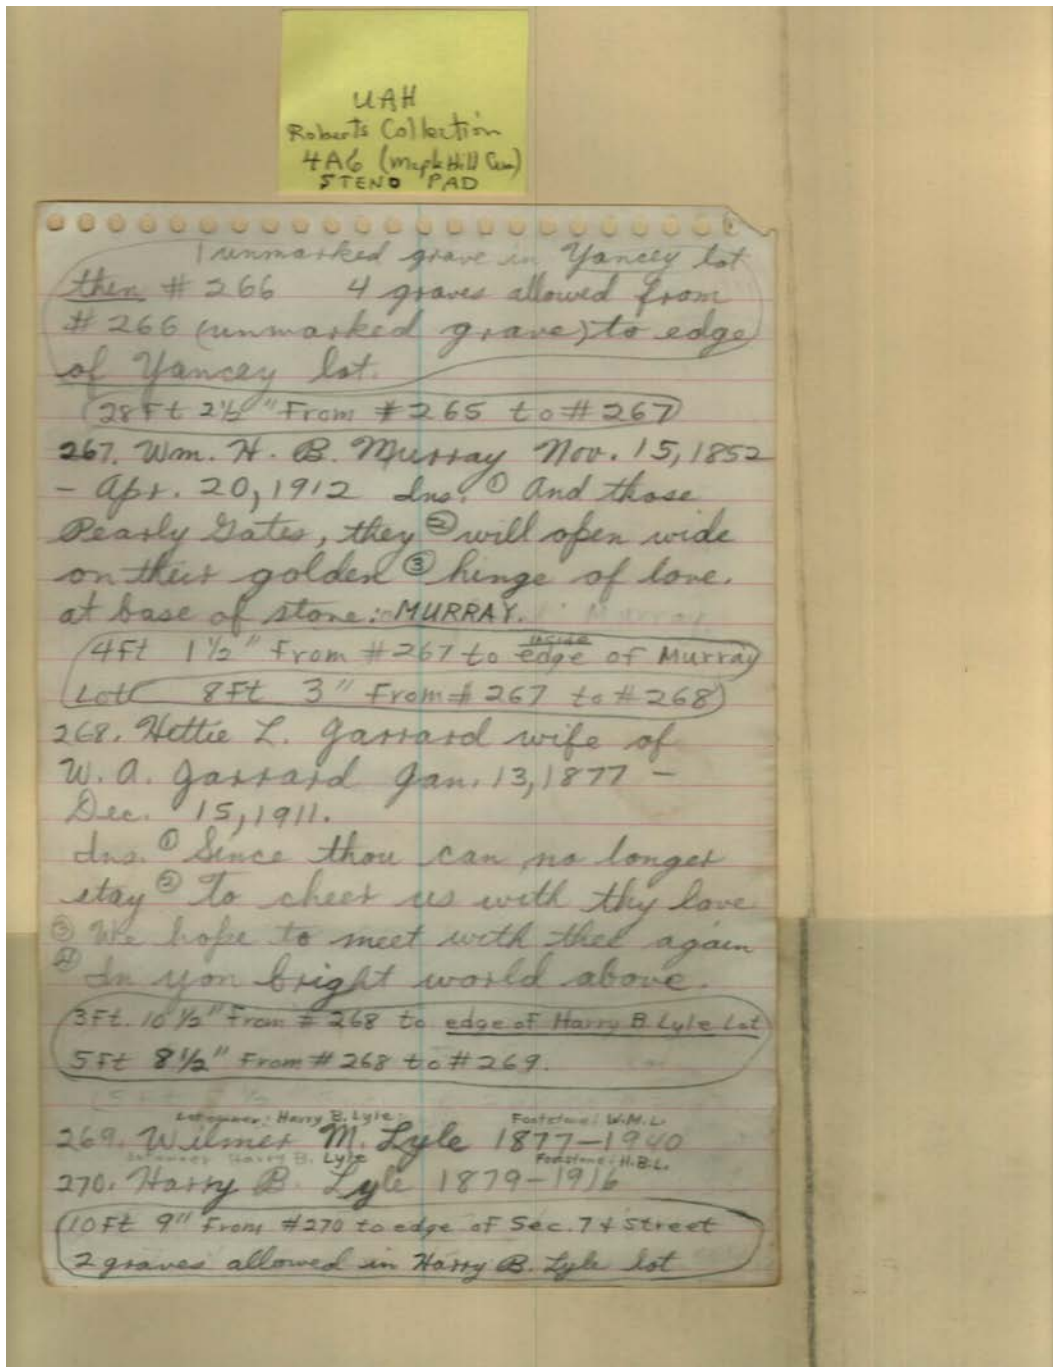 UAH
Roberts Collection
4A6 (Maple Hill Cem)
STENO PAD
1 unmarked grave in Yancey lot
then # 266 4 graves allowed from
# 266 (unmarked grave) to edge
of Yancey lot.
28Ft 2½" From # 265 to # 267
267. Wm. H. B. Murray Nov. 15, 1852
- Apr. 20, 1912 Ins. ① And those
Pearly Gates, they ② will open wide
on their golden ③ hinge of love.
at base of stone: MURRAY.
inside
4Ft 1½" From # 267 to edge of Murray
Lot 8Ft 3" From # 267 to # 268
268. Hettie L. Garrard wife of
W. A. Garrard Jan. 13, 1877 -
Dec. 15, 1911.
Ins. ① Since thou can no longer
stay ② To cheer us with thy love
③ We hope to meet with thee again
④ In yon bright world above.
3Ft. 10½" From # 268 to edge of Harry B. Lyle Lot
5Ft 8½" From # 268 to # 269.
Lot owner: Harry B. Lyle. Footstone: W.M.L.
269. Wilmer M. Lyle 1877-1940
Lot owner Harry B. Lyle Footstone: H.B.L.
270. Harry B. Lyle 1879-1916
10Ft 9" From # 270 to edge of Sec. 7 & Street
2 graves allowed in Harry B. Lyle lot